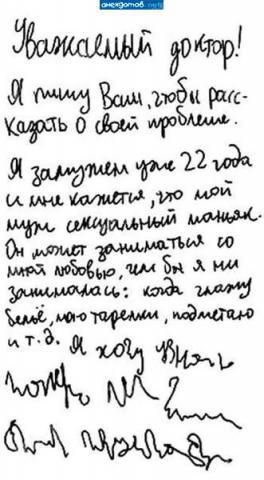 анекдотов.net
Уважаемый доктор!
Я пишу Вам, чтобы расс-
казать о своей проблеме.
Я замужем уже 22 года
и мне кажется, что мой
муж сексуальный маньяк.
Он может заниматься со
мной любовью, чем бы я ни
занималась: когда глажу
бельё, мою тарелки, подметаю
и т.д. Я хочу узнать